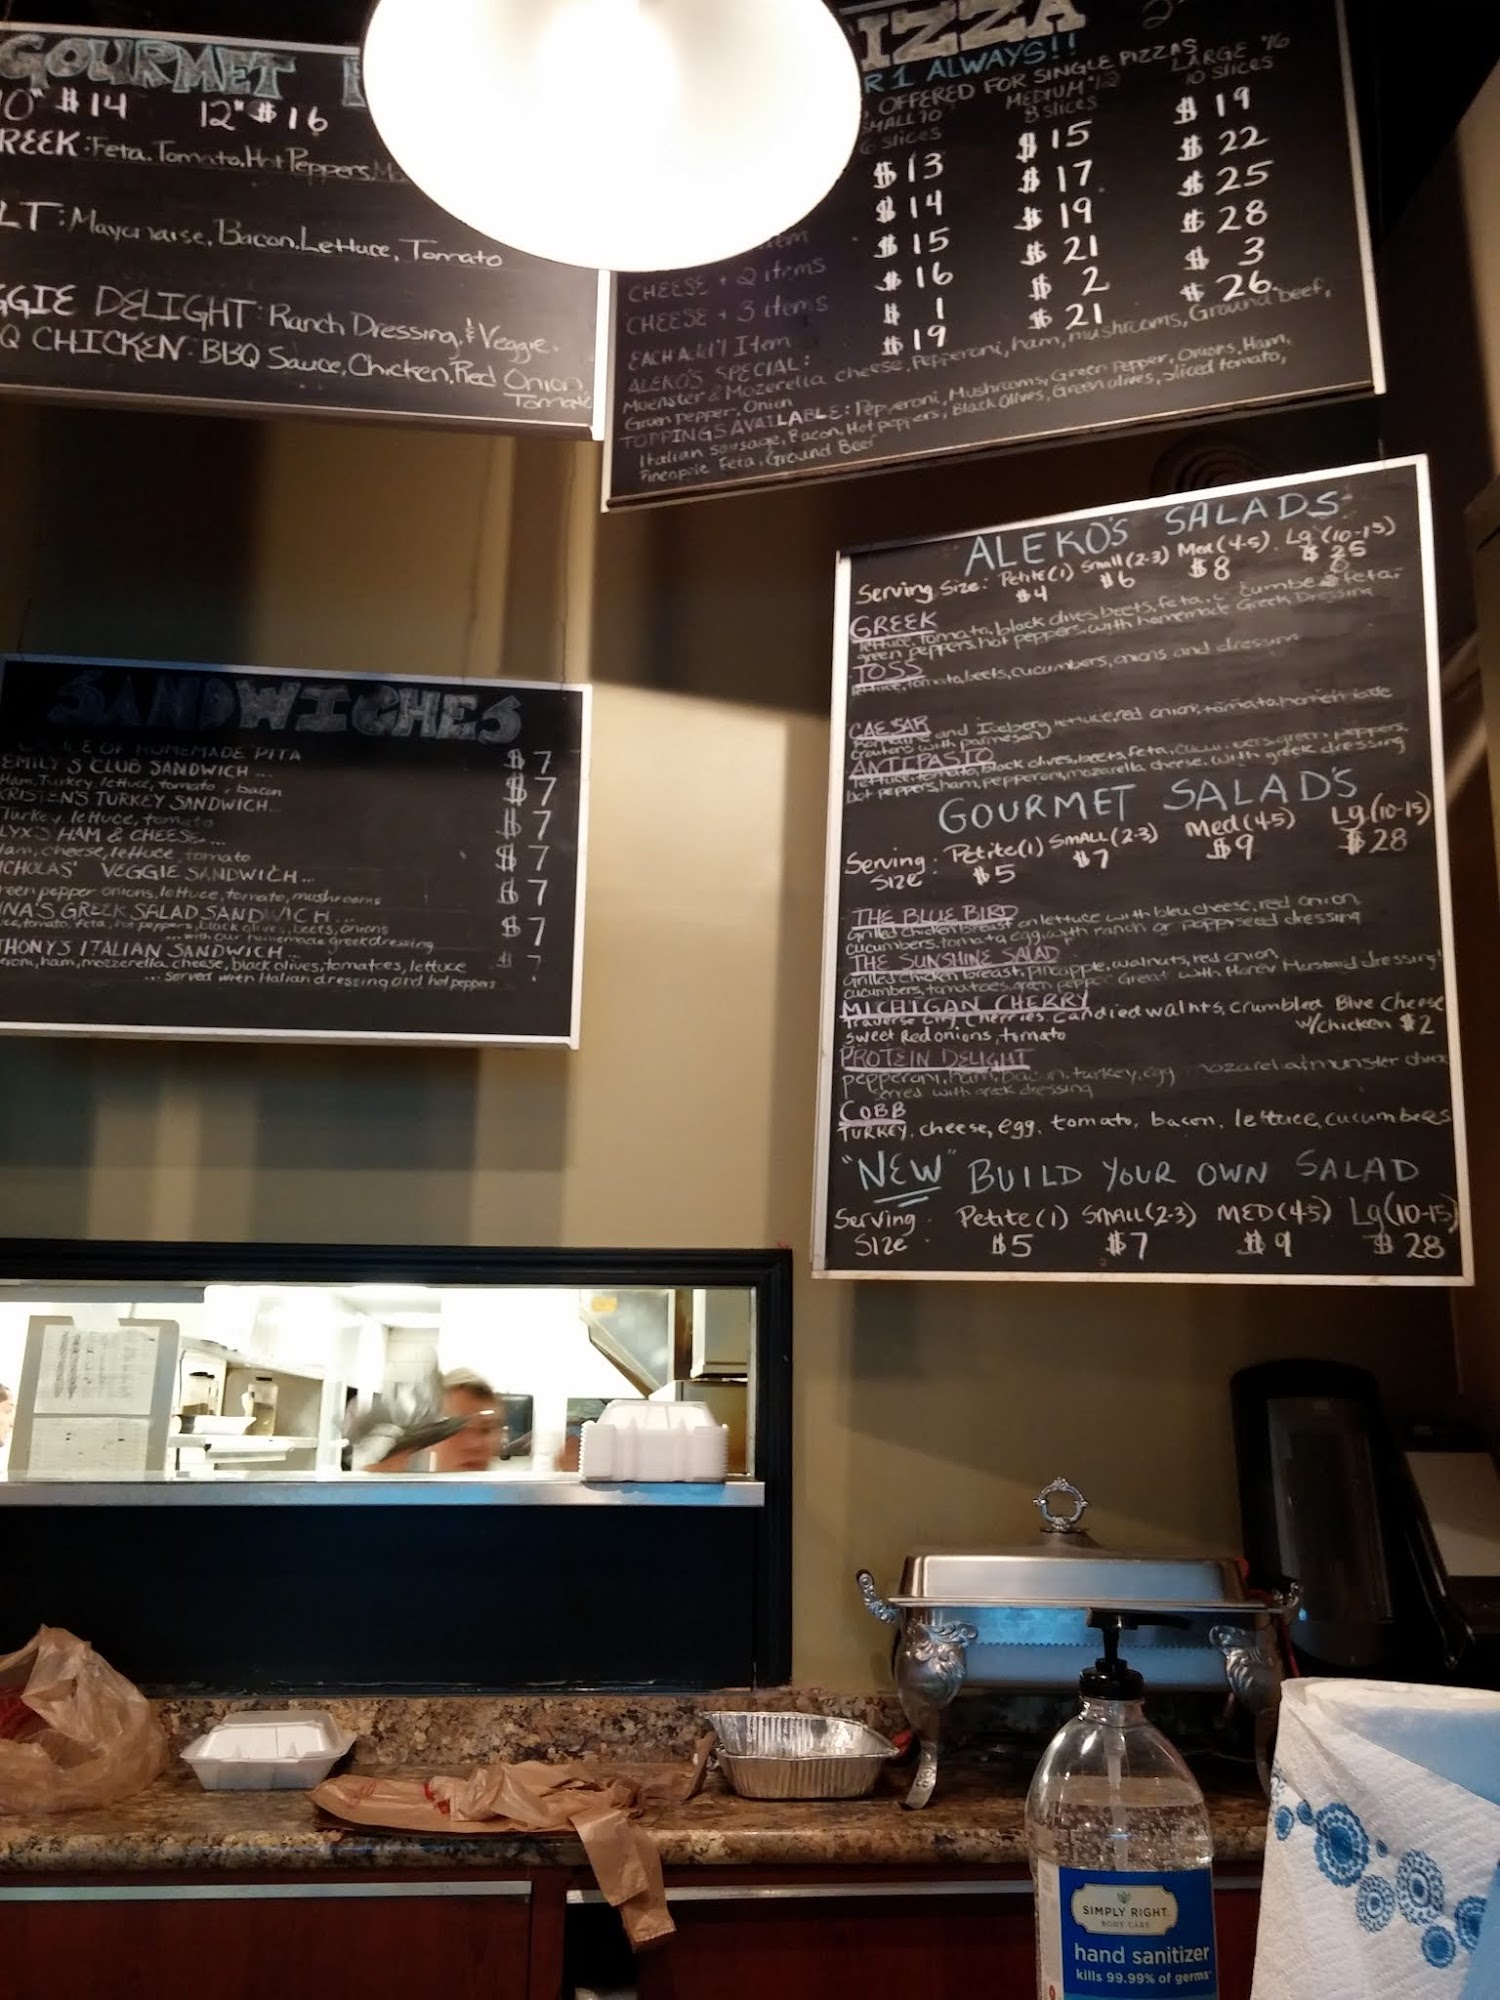 GOURMET
10" $14 12" $16
REEK: Feta, Tomato, Hot Peppers,
LT: Mayonaise, Bacon, Lettuce, Tomato
GGIE DELIGHT: Ranch Dressing, & Veggie.
Q CHICKEN: BBQ Sauce, Chicken, Red Onion,
Tomato
IZZA
R 1 ALWAYS!!
OFFERED FOR SINGLE PIZZAS
SMALL 10 MEDIUM "12 LARGE "16
6 slices 8 slices 10 slices
$13 $15 $19
$14 $17 $22
item $15 $19 $25
CHEESE + 2 items $16 $21 $28
CHEESE + 3 items $1 $2 $3
EACH Add'l Item $19 $21 $26
ALEKO'S SPECIAL:
Muenster & Mozerella cheese, Pepperoni, ham, mushrooms, Ground beef,
Green pepper, Onion
TOPPINGS AVAILABLE: Pepperoni, Mushrooms, Green Pepper, Onions, Ham,
Italian Sausage, Bacon, Hot peppers, Black Olives, Green olives, sliced tomato,
Pineapple, Feta, Ground Beef
ALEKO'S SALADS
Serving Size: Petite(1) Small(2-3) Med(4-5) Lg(10-15)
$4 $6 $8 $25
GREEK
lettuce, tomato, black olives, beets, feta,
green peppers, hot peppers, with homemade Greek Dressing
TOSS
lettuce, tomato, beets, cucumbers, onions and
CAESAR
Romaine and Iceberg lettuce, red onion, tomato, homemade
croutons with parmesan
ANTIPASTO
lettuce, tomato, black olives, beets, feta, cucumbers, green peppers,
hot peppers, ham, pepperoni, mozarella cheese. with greek dressing
GOURMET SALAD'S
Serving: Petite(1) SMALL(2-3) Med(4-5) Lg(10-15)
SIZE $5 $7 $9 $28
THE BLUE BIRD
Grilled chicken breast on lettuce with bleu cheese, red onion,
cucumbers, tomato, egg, with ranch or poppyseed dressing
THE SUNSHINE SALAD
Grilled chicken breast, pineapple, walnuts, red onion
cucumbers, tomatoes, green pepper Great with Honey Mustard dressing!
MICHIGAN CHERRY
Traverse City Cherries, Candied walnts, crumbled Blue Cheese
sweet Red onions, tomato w/chicken $2
PROTEIN DELIGHT
pepperoni, ham, bacon, turkey, egg mozarella, munster cheese
served with greek dressing
COBB
TURKEY, cheese, egg, tomato, bacon, lettuce, cucumbers
"NEW" BUILD YOUR OWN SALAD
Serving: Petite(1) SMALL(2-3) MED(4-5) Lg(10-15)
SIZE $5 $7 $9 $28
SANDWICHES
OF HOMEMADE PITA $7
EMILY'S CLUB SANDWICH... $7
Ham, Turkey, lettuce, tomato, bacon
KRISTEN'S TURKEY SANDWICH... $7
Turkey lettuce, tomato
LYX'S HAM & CHEESE... $7
Ham, cheese, lettuce, tomato
ICHOLAS' VEGGIE SANDWICH... $7
reen pepper onions, lettuce, tomato, mushrooms
INA'S GREEK SALAD SANDWICH... $7
uce, tomato, feta, hot peppers, black olives, beets, onions
...with our homemade greek dressing
THONY'S ITALIAN SANDWICH... $7
eroni, ham, mozzerella cheese, black olives, tomatoes, lettuce
...served with Italian dressing and hot peppers
SIMPLY RIGHT
BODY CARE
hand sanitizer
kills 99.99% of germs*